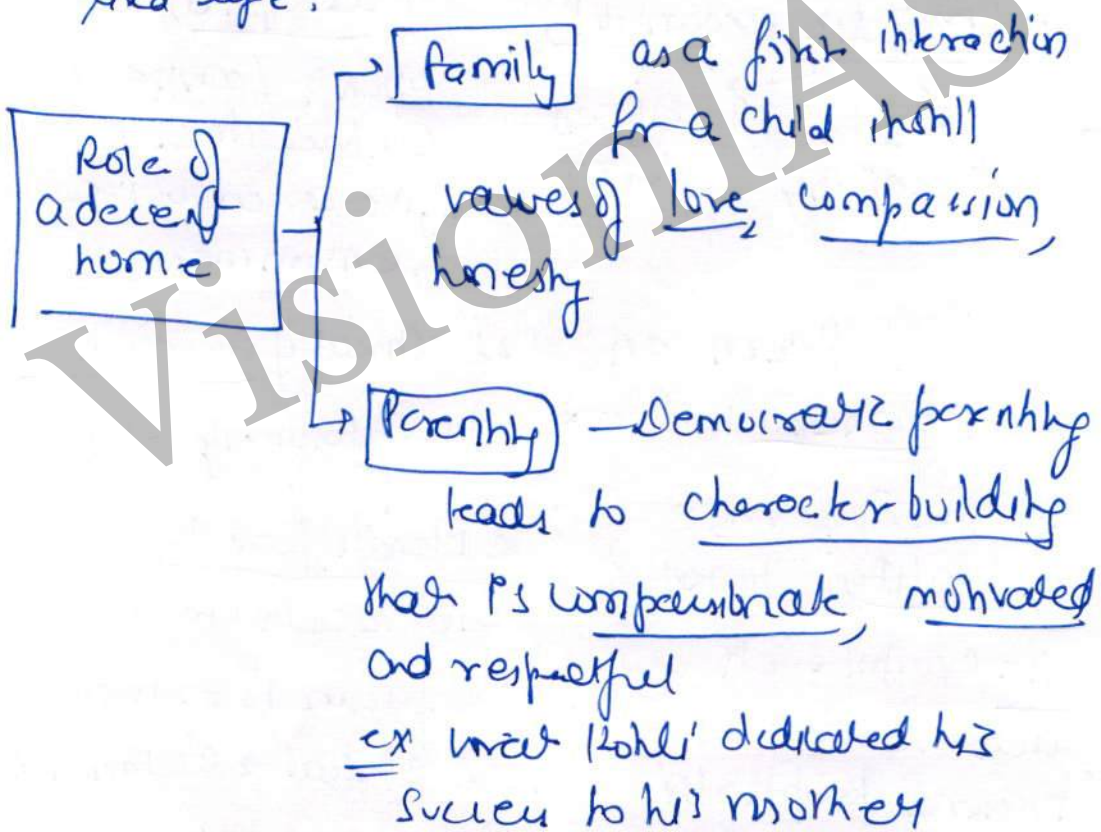 life.
Family as a first interaction
for a child instill
values of love, compassion,
honesty
Role of
a decent
home
Parenting - Democratic parenting
leads to character building
that is compassionate, motivated
and respectful
ex Virat Kohli dedicated his
success to his mother
VisionIAS